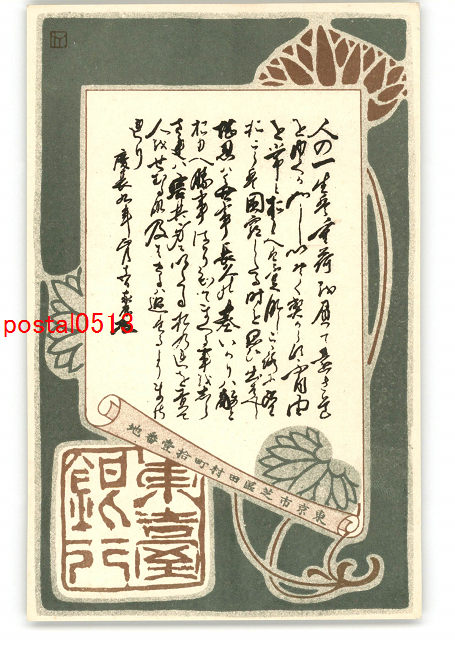 人の一生は重荷を負て遠き道
をゆくがごとしいそぐべからず不自由
を常とおもへば不足なしこころに望
おこらば困窮したる時を思ひ出すべし
堪忍は無事長久の基いかりは敵と
おもへ勝事ばかり知てまくる事をしら
ざれば害其身にいたるおのれを責て
人をせむるな及ばざるは過たるよりまさ
れり
慶長九年
東京市芝區田村町拾壹番地
東臺
銀行
postal0513